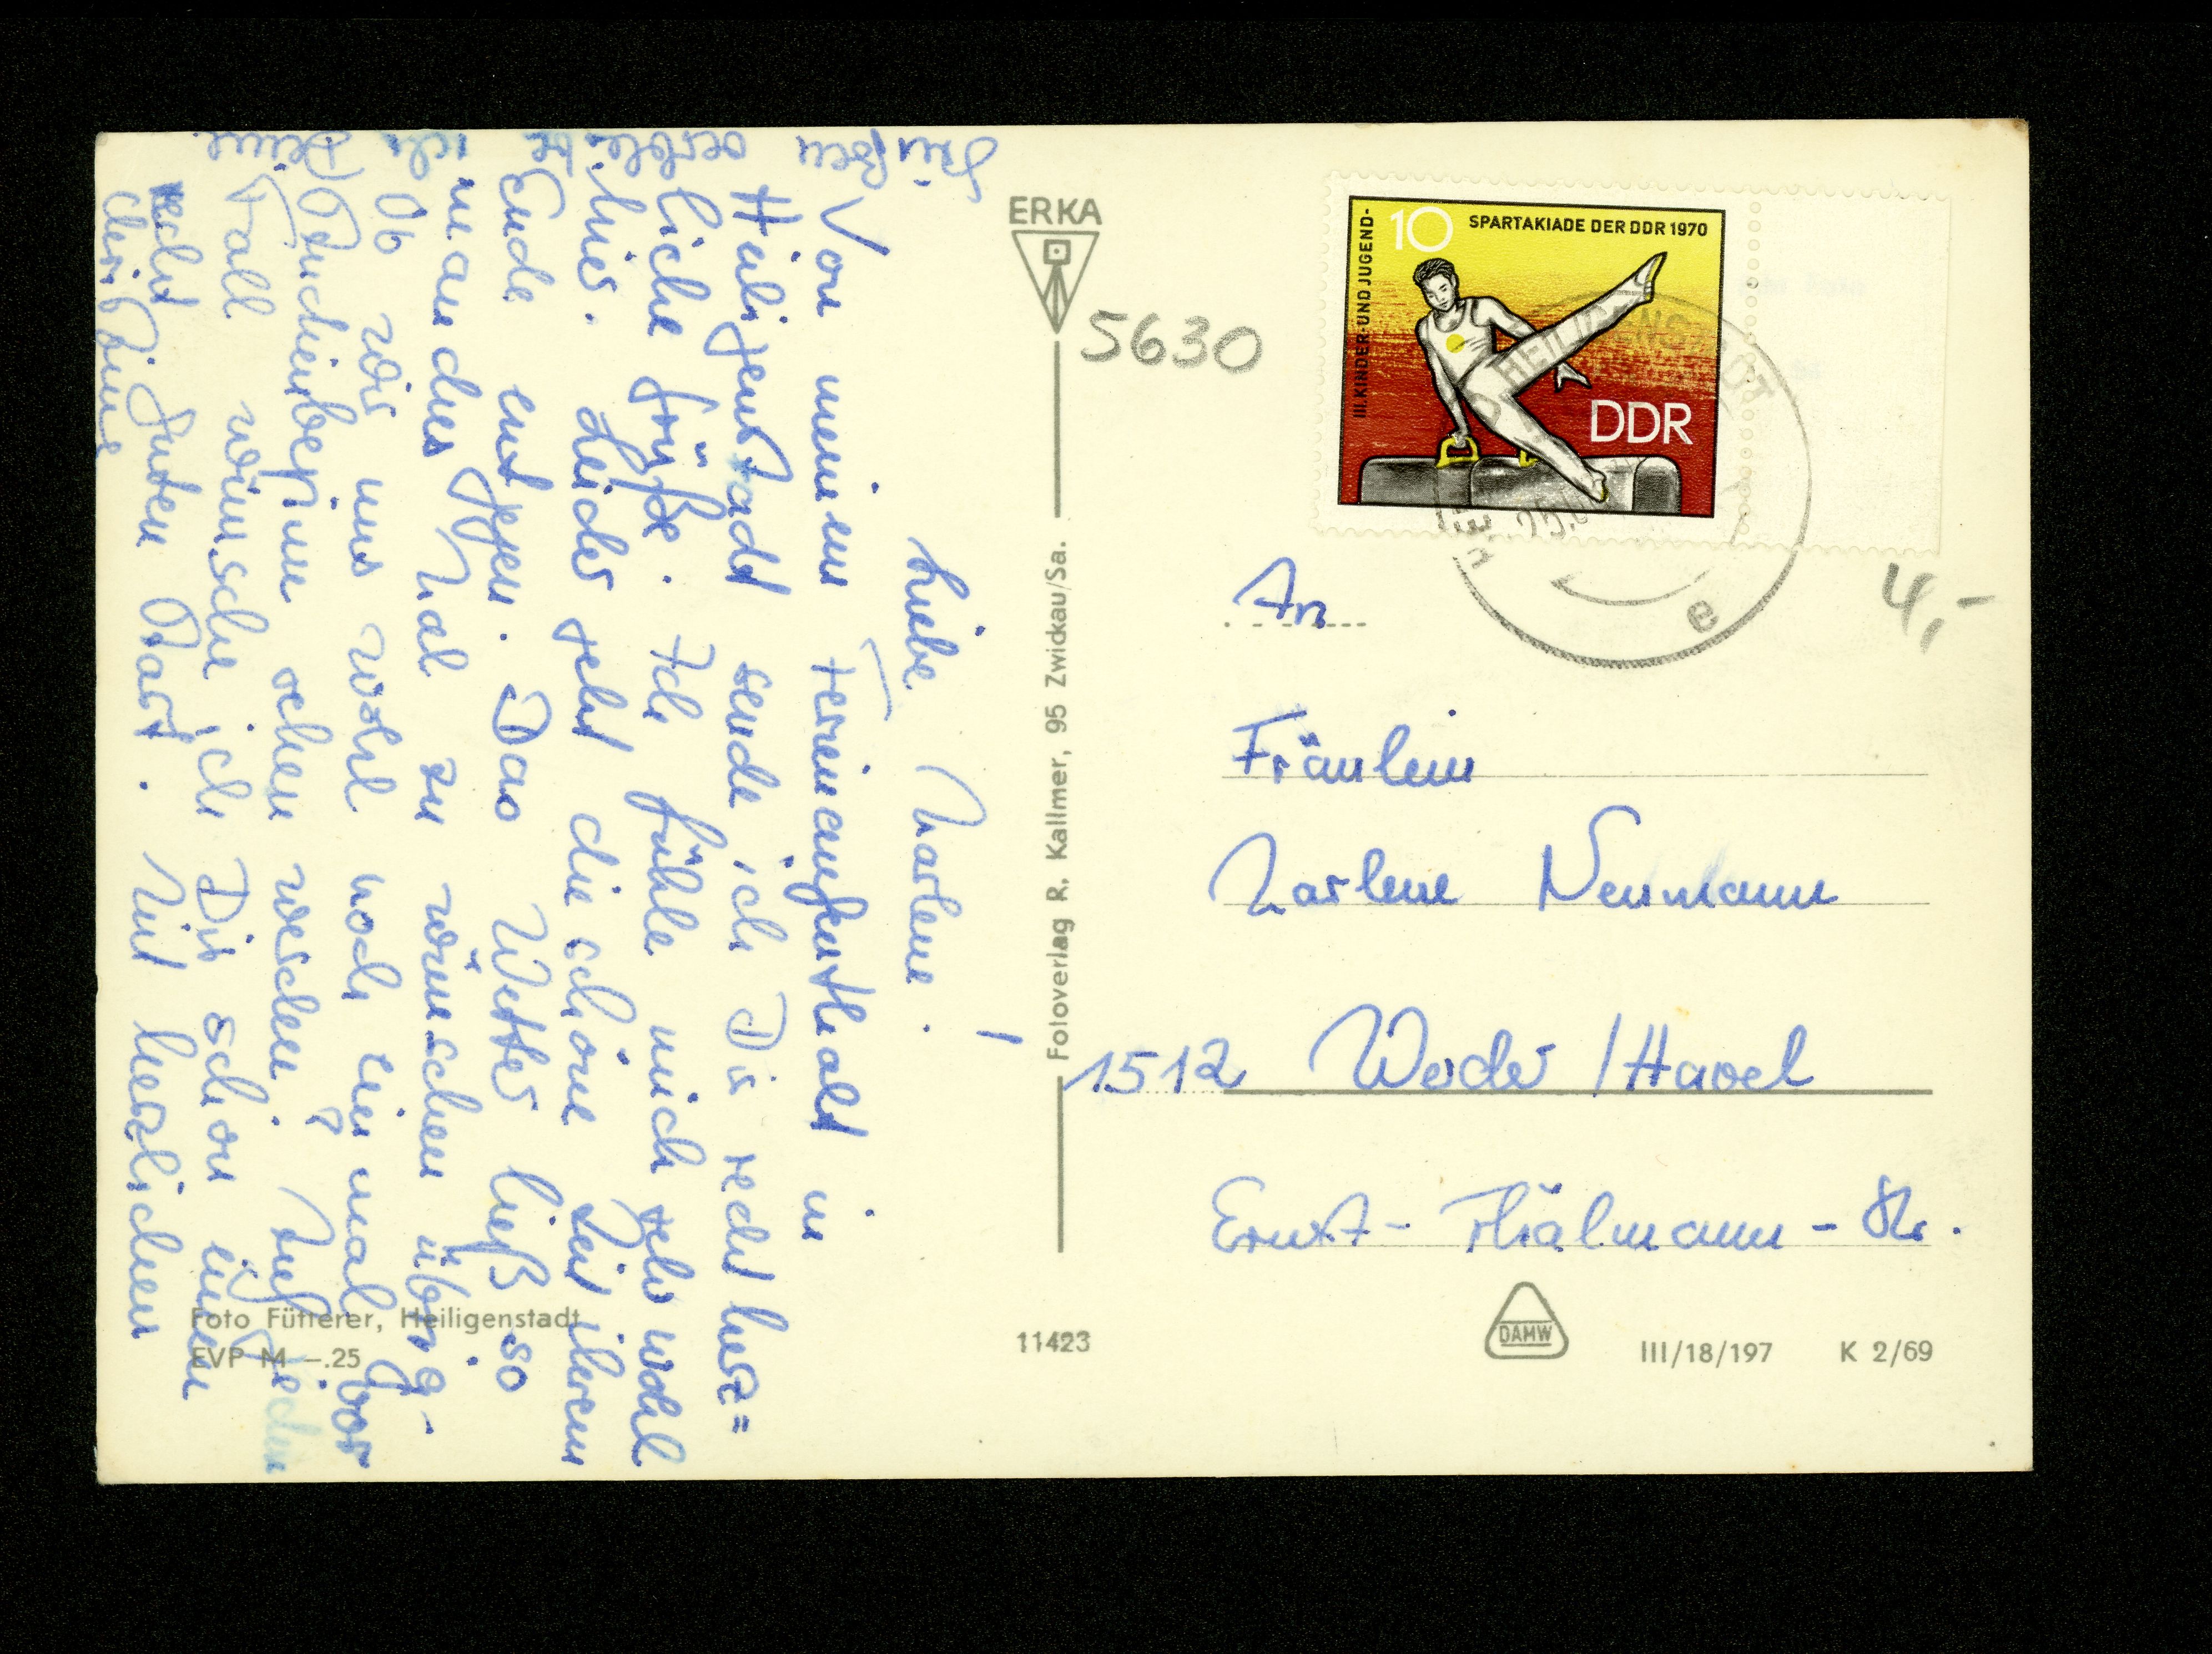 Liebe Marlene!
Von meinem Ferienaufenthalt in
Heiligenstadt sende ich Dir recht herz=
liche Grüße. Ich fühle mich sehr wohl
hier. Leider geht die schöne Zeit ihrem
Ende entgegen. Das Wetter ließ so
manches Mal zu wünschen übrig.
Ob wir uns wohl noch einmal vor
Studienbeginn sehen werden? Auf jeden
Fall wünsche ich Dir schon einen
recht guten Start. Mit herzlichen
Grüßen verbleibe ich Deine
ERKA
5630
Fotoverlag R. Kallmer, 95 Zwickau/Sa.
III. KINDER-UND JUGEND-
10 SPARTAKIADE DER DDR 1970
DDR
HEILIGENSTADT
e
4,-
An
Fräulein
Marlene Neumann
1512 Werder/Havel
Ernst-Thälmann-Str.
Foto Fütterer, Heiligenstadt
EVP M -.25
11423
DAMW
III/18/197 K 2/69